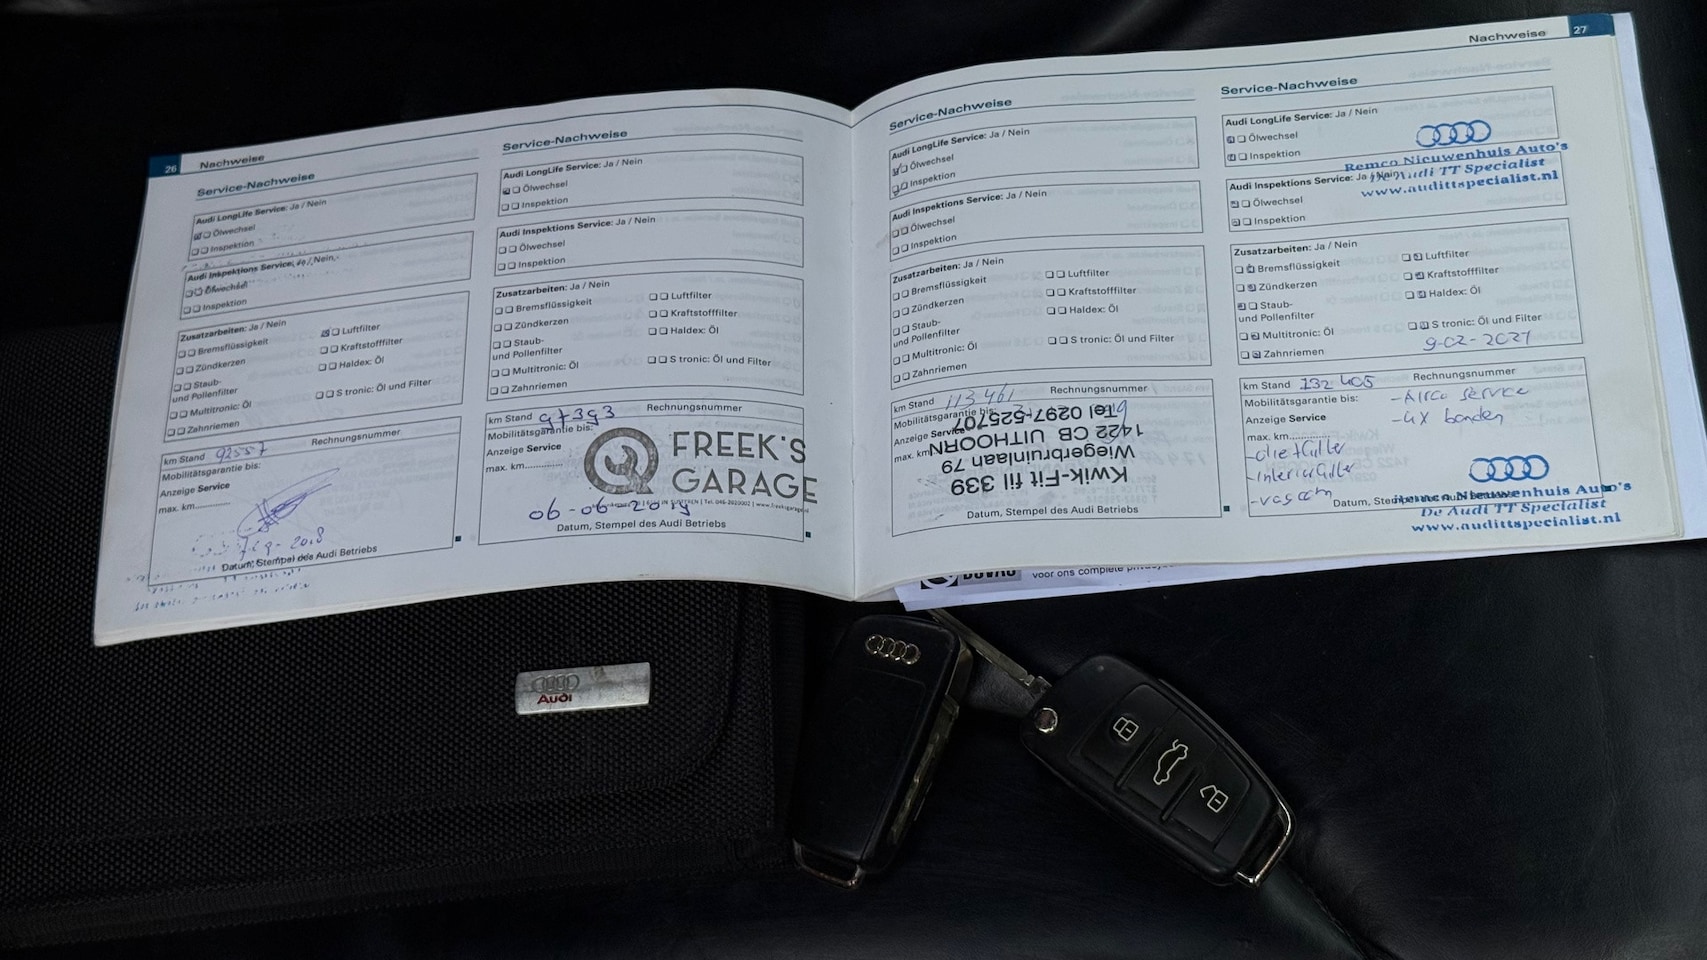 26 Nachweise
Service-Nachweise
Audi LongLife Service: Ja / Nein
Ölwechsel
Inspektion
Audi Inspektions Service: Ja / Nein
Ölwechsel
Inspektion
Zusatzarbeiten: Ja / Nein
Bremsflüssigkeit
Zündkerzen
Staub-
und Pollenfilter
Multitronic: Öl
Zahnriemen
Luftfilter
Kraftstofffilter
Haldex: Öl
S tronic: Öl und Filter
km Stand 92557
Rechnungsnummer
Mobilitätsgarantie bis:
Anzeige Service
max. km
2018
Datum, Stempel des Audi Betriebs
Service-Nachweise
Audi LongLife Service: Ja / Nein
Ölwechsel
Inspektion
Audi Inspektions Service: Ja / Nein
Ölwechsel
Inspektion
Zusatzarbeiten: Ja / Nein
Bremsflüssigkeit
Zündkerzen
Staub-
und Pollenfilter
Multitronic: Öl
Zahnriemen
Luftfilter
Kraftstofffilter
Haldex: Öl
S tronic: Öl und Filter
km Stand 97393
Rechnungsnummer
Mobilitätsgarantie bis:
Anzeige Service
max. km
FREEK'S
GARAGE
06-06-2019
Datum, Stempel des Audi Betriebs
Service-Nachweise
Audi LongLife Service: Ja / Nein
Ölwechsel
Inspektion
Audi Inspektions Service: Ja / Nein
Ölwechsel
Inspektion
Zusatzarbeiten: Ja / Nein
Bremsflüssigkeit
Zündkerzen
Staub-
und Pollenfilter
Multitronic: Öl
Zahnriemen
Luftfilter
Kraftstofffilter
Haldex: Öl
S tronic: Öl und Filter
km Stand 113461
Rechnungsnummer
Mobilitätsgarantie bis:
Anzeige Service
max. km
Kwik-Fit fil 339
Wiegerbruinlaan 79
1422 CB UITHOORN
Tel 0297-525707
Datum, Stempel des Audi Betriebs
Nachweise 27
Service-Nachweise
Audi LongLife Service: Ja / Nein
Ölwechsel
Inspektion
Remco Nieuwenhuis Auto's
De Audi TT Specialist
www.audittspecialist.nl
Audi Inspektions Service: Ja / Nein
Ölwechsel
Inspektion
Zusatzarbeiten: Ja / Nein
Bremsflüssigkeit
Zündkerzen
Staub-
und Pollenfilter
Multitronic: Öl
Zahnriemen
Luftfilter
Kraftstofffilter
Haldex: Öl
S tronic: Öl und Filter
9-02-2021
km Stand 132405
Rechnungsnummer
Mobilitätsgarantie bis:
Anzeige Service
max. km
-Airco service
-4x banden
-oliefilter
-interieurfilter
Datum, Stempel des Audi Betriebs
Remco Nieuwenhuis Auto's
De Audi TT Specialist
www.audittspecialist.nl
BOVAG
voor ons complete
Audi